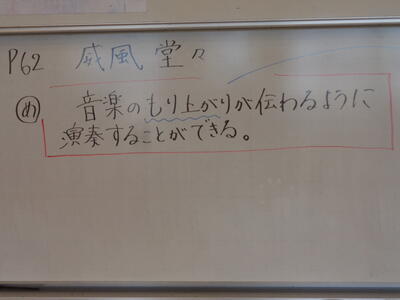 P62 威風堂々
め 音楽のもり上がりが伝わるように
演奏することができる。